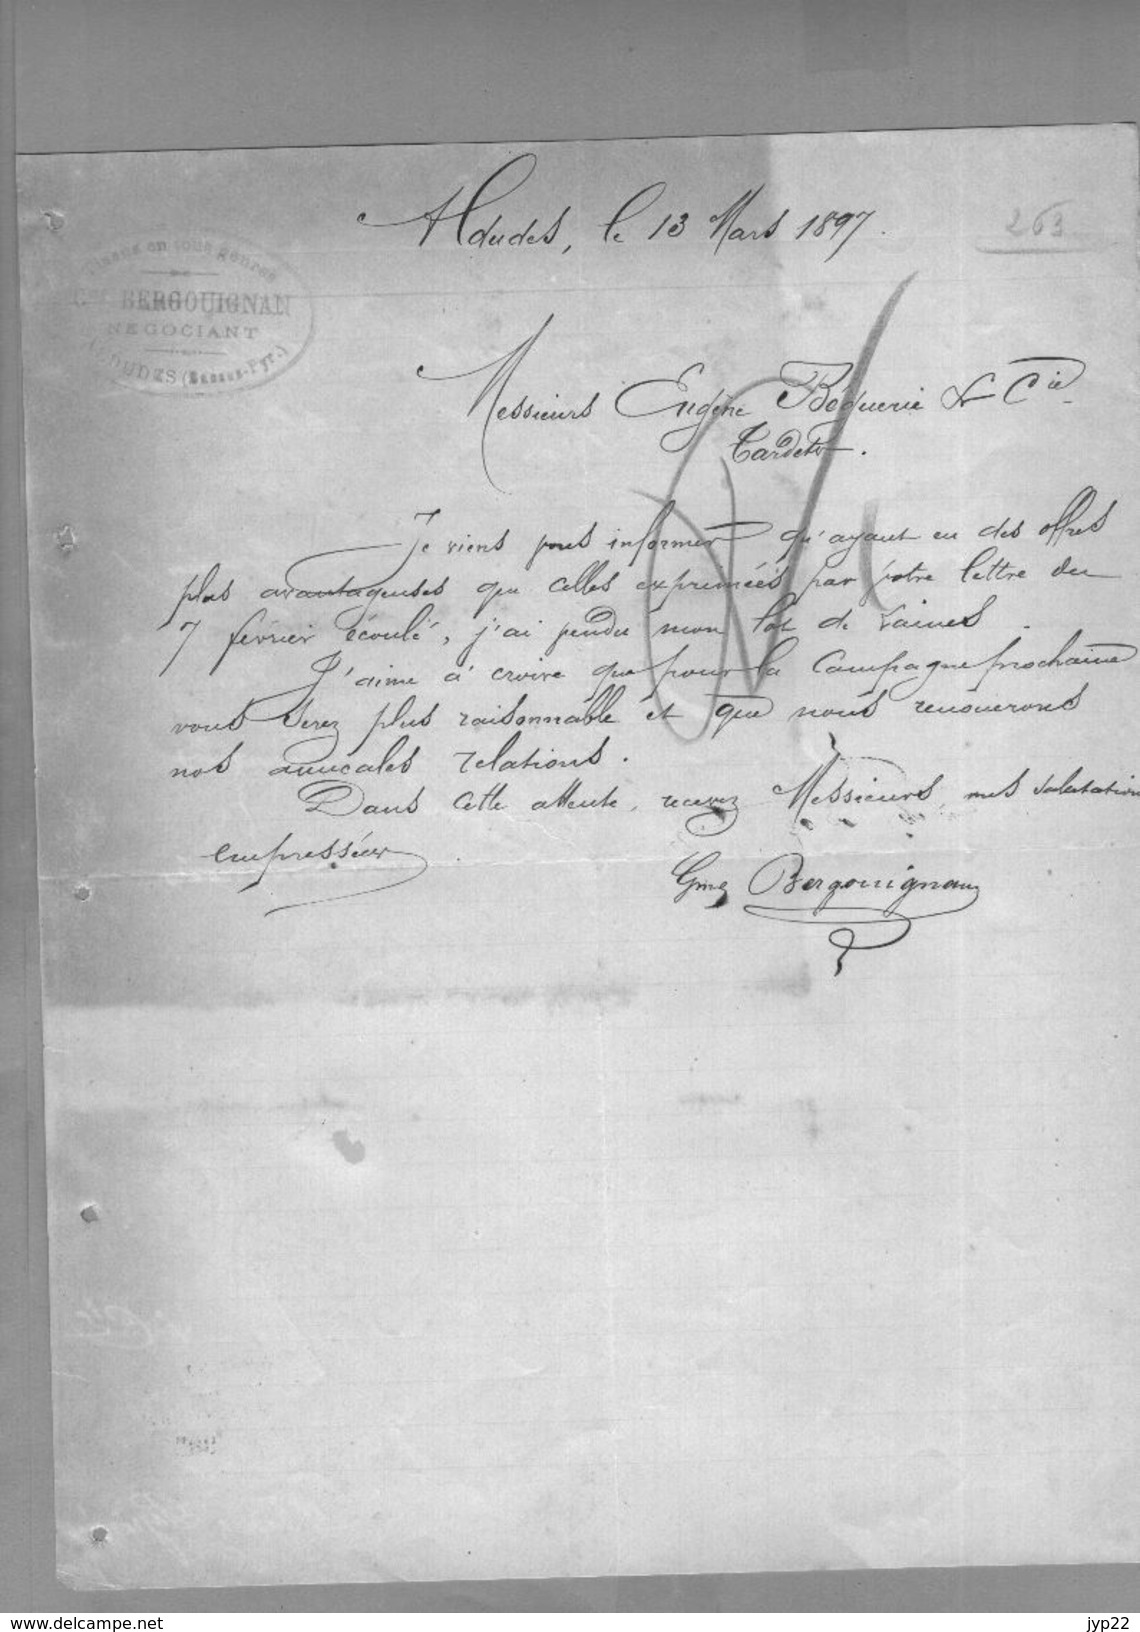 Aldudes, le 13 Mars 1897.
263
en tous genres
BERGOUIGNAN
NEGOCIANT
(Basses-Pyr.)
Messieurs Eugène Béquerie & Cie
Tardets.
Je viens vous informer qu'ayant eu des offres
plus avantageuses que celles exprimées par votre lettre du
7 février écoulé, j'ai vendu mon lot de laines.
J'aime à croire que pour la Campagne prochaine
vous serez plus raisonnable et que nous renouerons
nos amicales relations.
Dans cette attente, recevez Messieurs, mes salutations
empressées
Gme Bergouignan
delcampe.net
jyp22